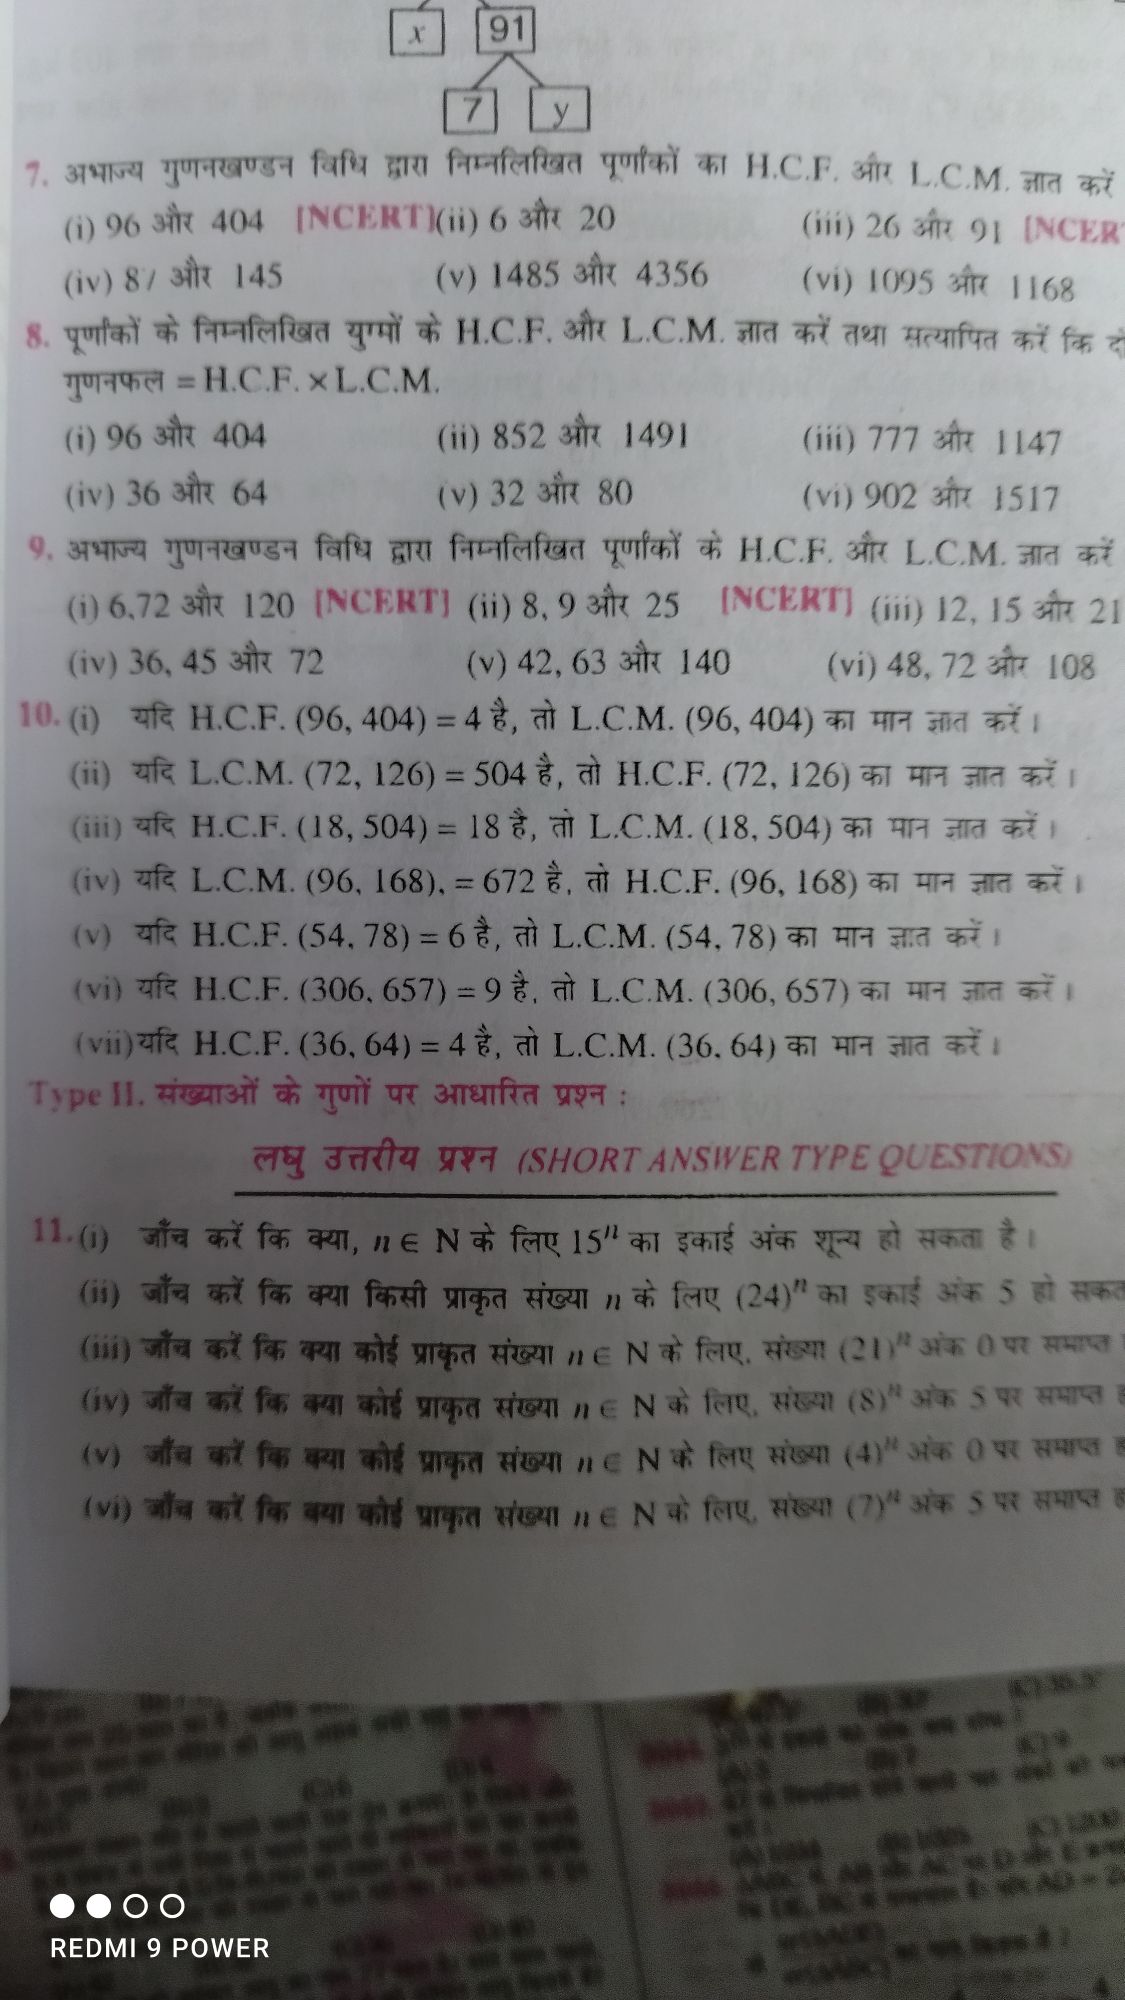 x 91
7 y
7. अभाज्य गुणनखण्डन विधि द्वारा निम्नलिखित पूर्णांकों का H.C.F. और L.C.M. ज्ञात करें
(i) 96 और 404 [NCERT] (ii) 6 और 20 (iii) 26 और 91 [NCER
(iv) 87 और 145 (v) 1485 और 4356 (vi) 1095 और 1168
8. पूर्णांकों के निम्नलिखित युग्मों के H.C.F. और L.C.M. ज्ञात करें तथा सत्यापित करें कि दो
गुणनफल = H.C.F. × L.C.M.
(i) 96 और 404 (ii) 852 और 1491 (iii) 777 और 1147
(iv) 36 और 64 (v) 32 और 80 (vi) 902 और 1517
9. अभाज्य गुणनखण्डन विधि द्वारा निम्नलिखित पूर्णांकों के H.C.F. और L.C.M. ज्ञात करें
(i) 6,72 और 120 [NCERT] (ii) 8, 9 और 25 [NCERT] (iii) 12, 15 और 21
(iv) 36, 45 और 72 (v) 42, 63 और 140 (vi) 48, 72 और 108
10. (i) यदि H.C.F. (96, 404) = 4 है, तो L.C.M. (96, 404) का मान ज्ञात करें।
(ii) यदि L.C.M. (72, 126) = 504 है, तो H.C.F. (72, 126) का मान ज्ञात करें।
(iii) यदि H.C.F. (18, 504) = 18 है, तो L.C.M. (18, 504) का मान ज्ञात करें।
(iv) यदि L.C.M. (96, 168), = 672 है, तो H.C.F. (96, 168) का मान ज्ञात करें।
(v) यदि H.C.F. (54, 78) = 6 है, तो L.C.M. (54, 78) का मान ज्ञात करें।
(vi) यदि H.C.F. (306, 657) = 9 है, तो L.C.M. (306, 657) का मान ज्ञात करें।
(vii) यदि H.C.F. (36, 64) = 4 है, तो L.C.M. (36, 64) का मान ज्ञात करें।
Type II. संख्याओं के गुणों पर आधारित प्रश्न :
लघु उत्तरीय प्रश्न (SHORT ANSWER TYPE QUESTIONS)
11. (i) जाँच करें कि क्या, n ∈ N के लिए 15ⁿ का इकाई अंक शून्य हो सकता है।
(ii) जाँच करें कि क्या किसी प्राकृत संख्या n के लिए (24)ⁿ का इकाई अंक 5 हो सकत
(iii) जाँच करें कि क्या कोई प्राकृत संख्या n ∈ N के लिए, संख्या (21)ⁿ अंक 0 पर समाप्त
(iv) जाँच करें कि क्या कोई प्राकृत संख्या n ∈ N के लिए, संख्या (8)ⁿ अंक 5 पर समाप्त
(v) जाँच करें कि क्या कोई प्राकृत संख्या n ∈ N के लिए संख्या (4)ⁿ अंक 0 पर समाप्त
(vi) जाँच करें कि क्या कोई प्राकृत संख्या n ∈ N के लिए, संख्या (7)ⁿ अंक 5 पर समाप्त
REDMI 9 POWER